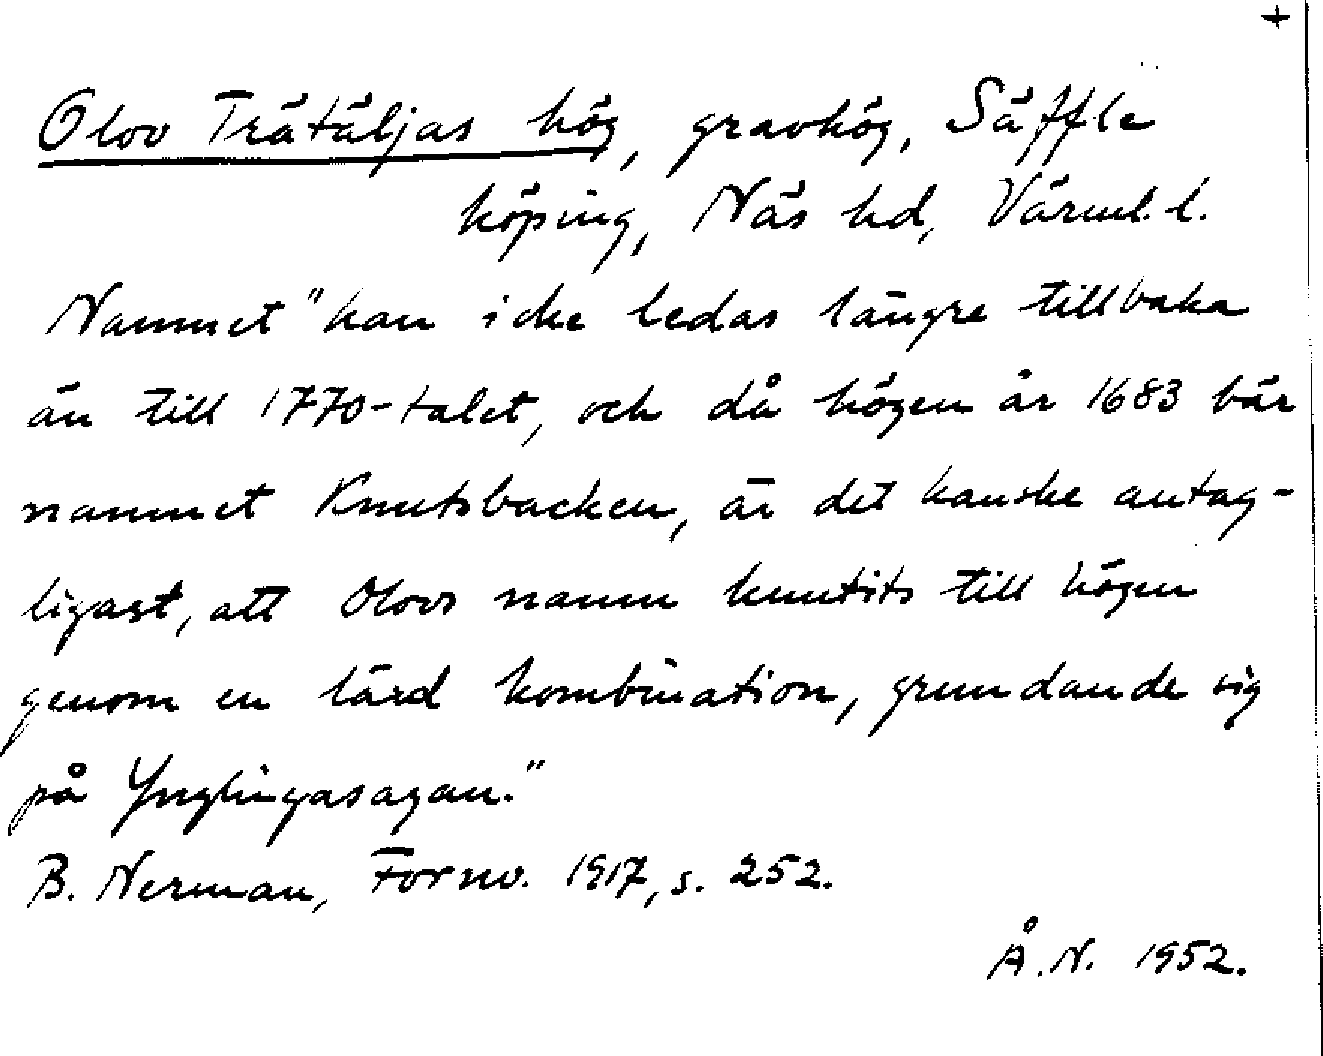 +
Olov Trätäljas hög, gravhög, Säffle
köping, Näs hd, Värml. l.
Namnet "kan icke ledas längre tillbaka
än till 1770-talet, och då högen år 1683 bär
namnet Knutsbacken, är det kanske antag-
ligast, att Olovs namn knutits till högen
genom en lärd kombination, grundande sig
på Ynglingasagan."
B. Nerman, Fornv. 1917, s. 252.
Å.N. 1952.